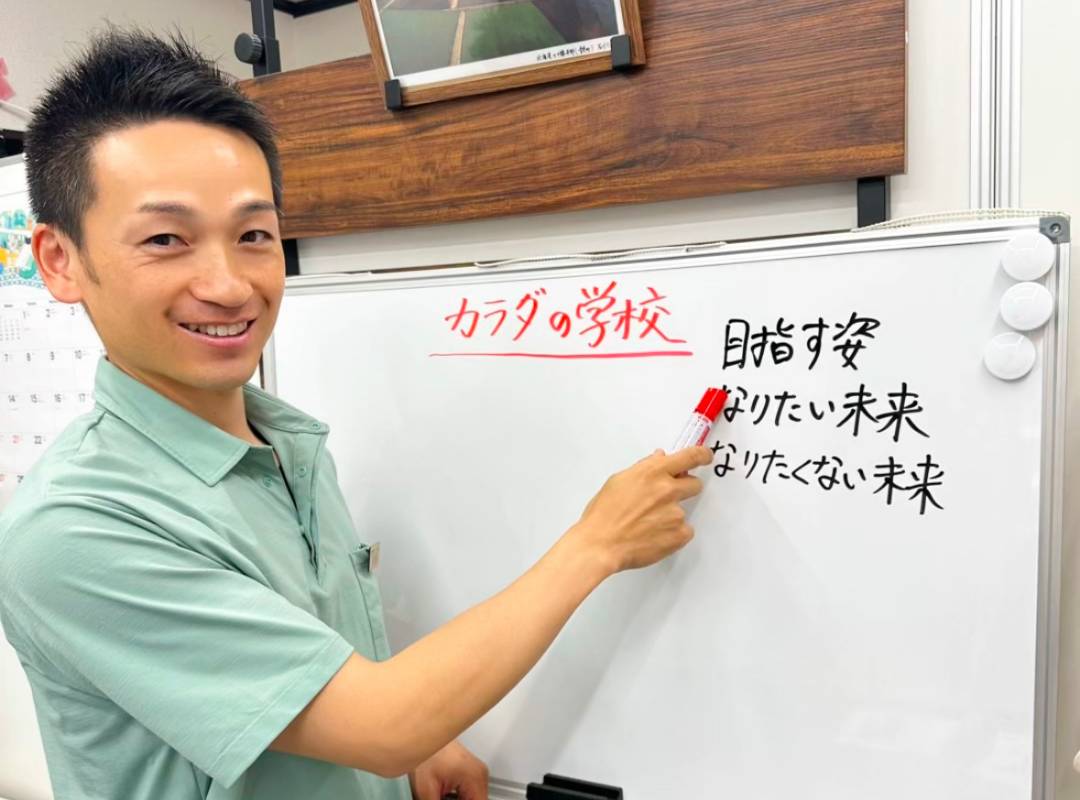 カラダの学校
目指す姿
なりたい未来
なりたくない未来